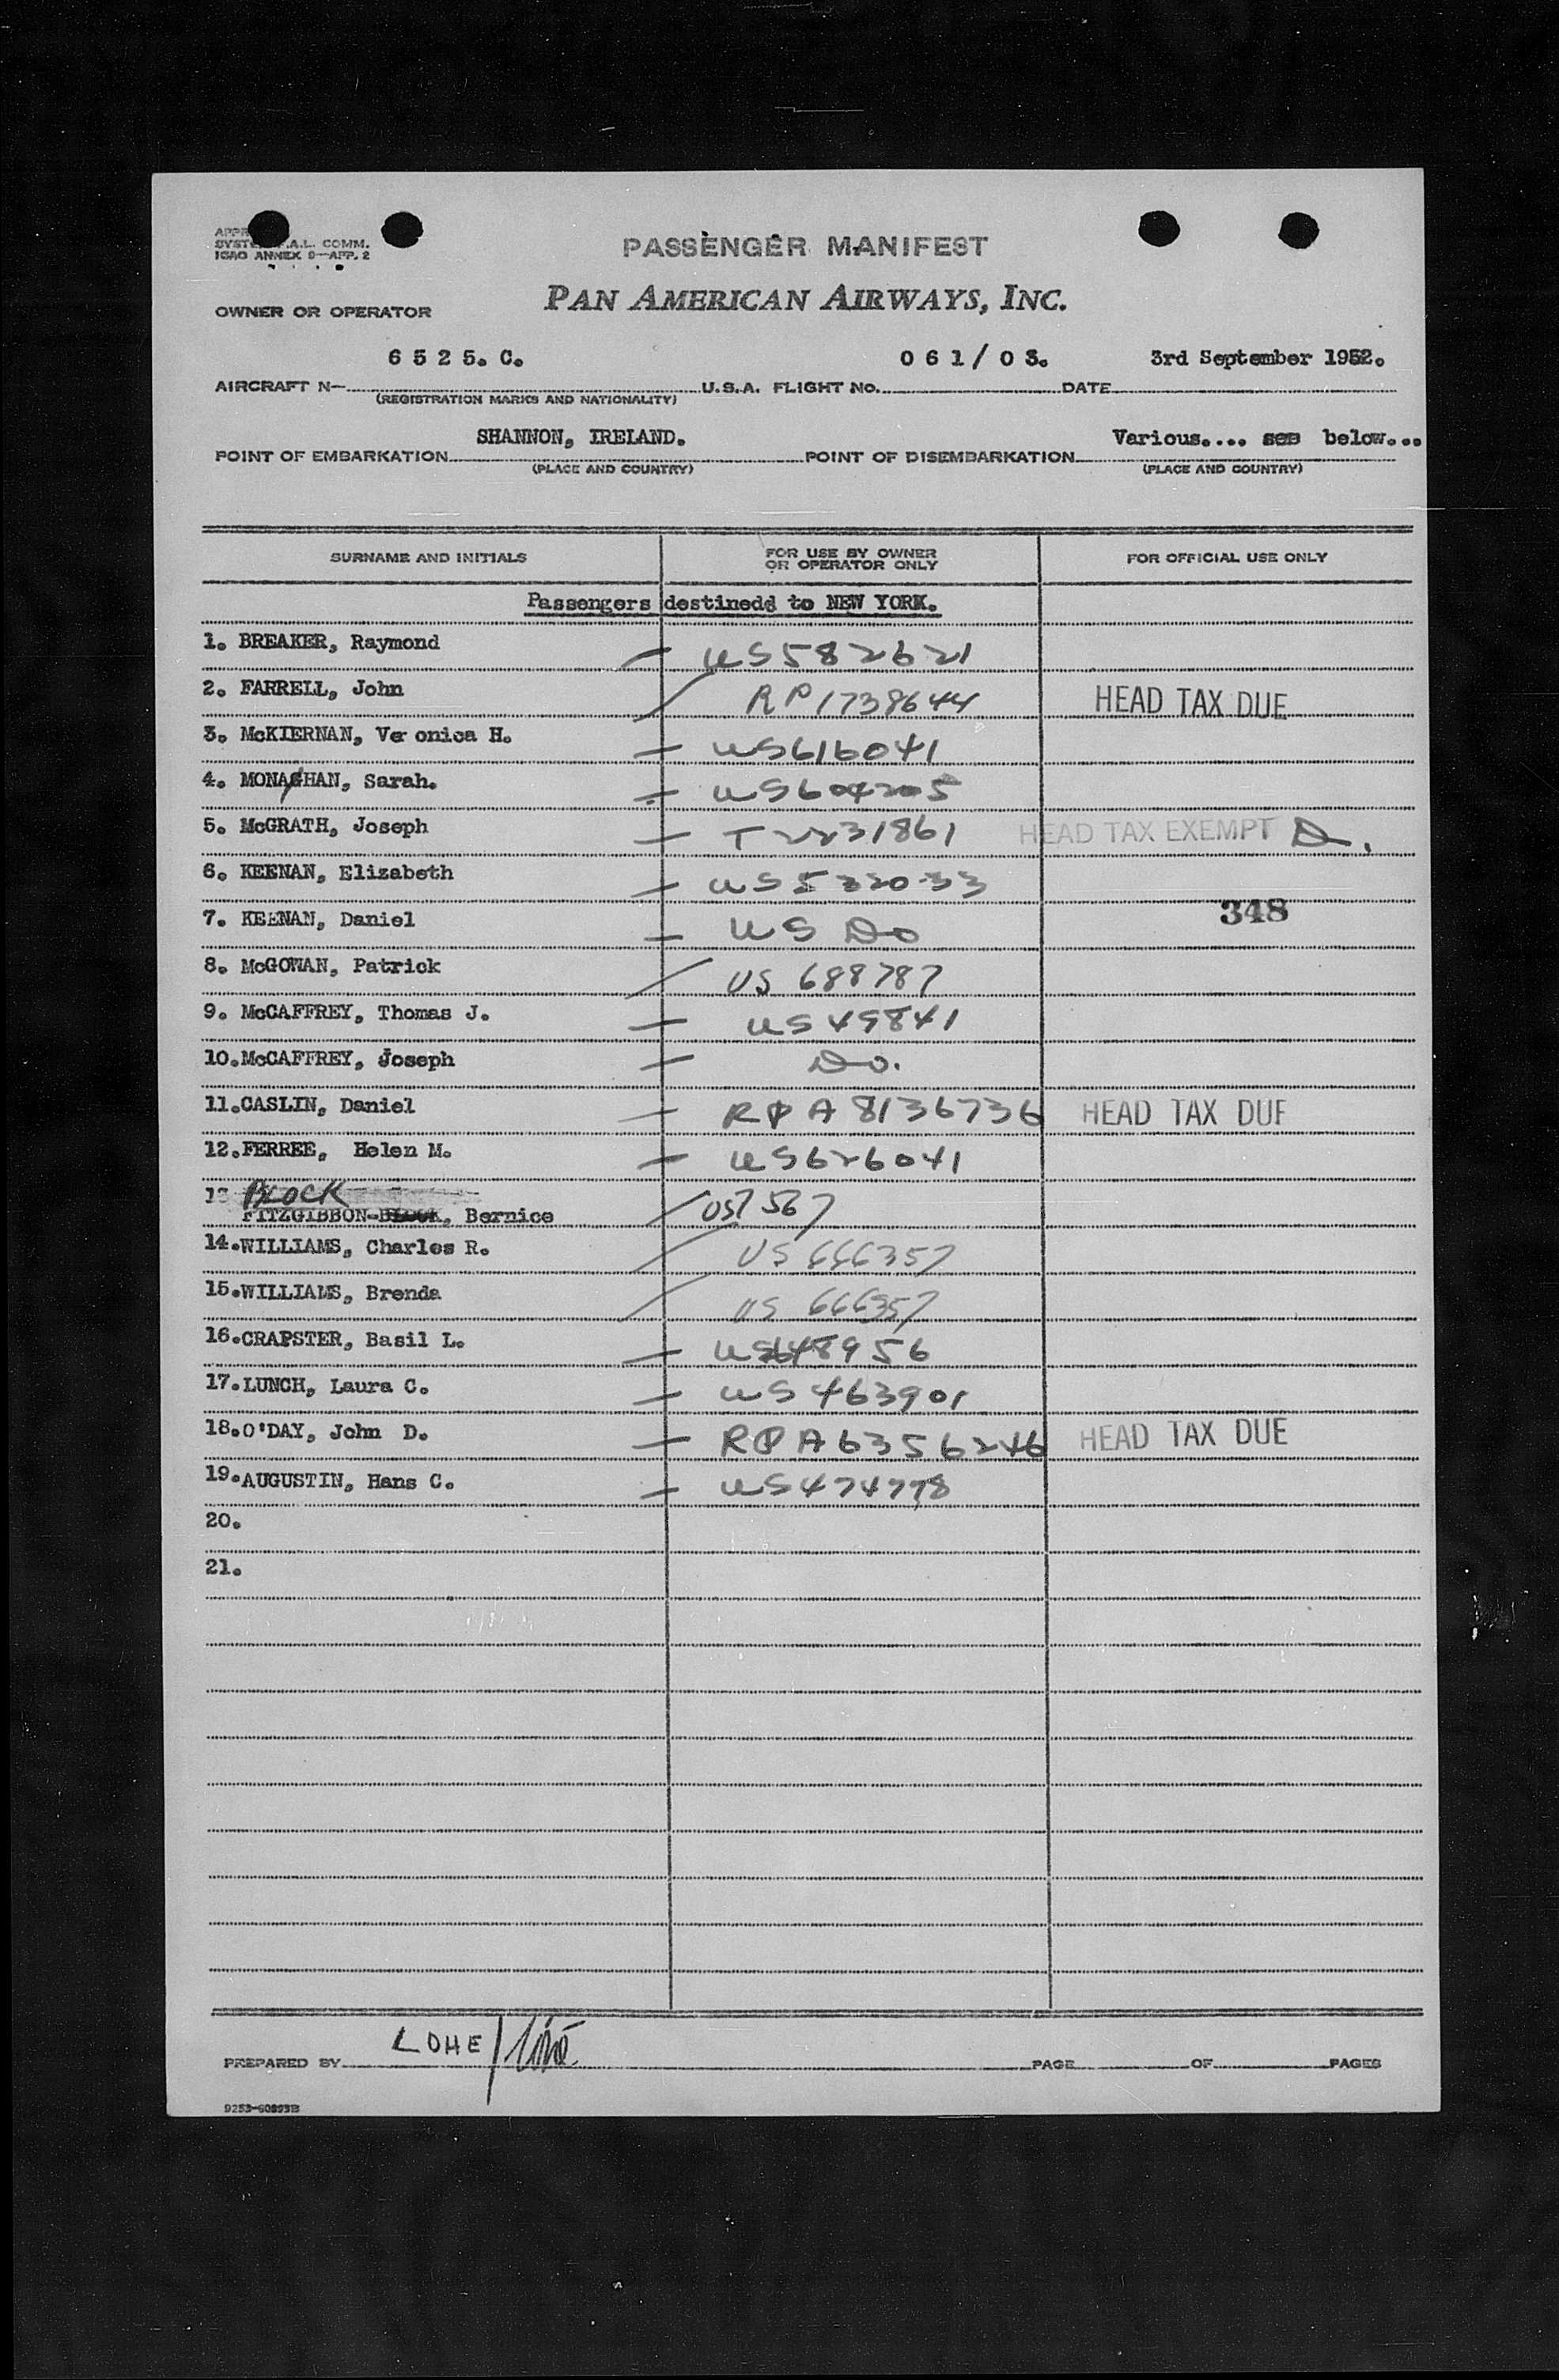 SYST F.A.L. COMM.
ICAO ANNEX 9—APP. 2
PASSENGER MANIFEST
OWNER OR OPERATOR
PAN AMERICAN AIRWAYS, INC.
6 5 2 5. C. 0 6 1 / 0 3. 3rd September 1952.
AIRCRAFT N— U.S.A. FLIGHT NO. DATE
(REGISTRATION MARKS AND NATIONALITY)
SHANNON, IRELAND. Various.... see below...
POINT OF EMBARKATION POINT OF DISEMBARKATION
(PLACE AND COUNTRY) (PLACE AND COUNTRY)
SURNAME AND INITIALS FOR USE BY OWNER OR OPERATOR ONLY FOR OFFICIAL USE ONLY
Passengers destineds to NEW YORK.
1. BREAKER, Raymond — US582621
2. FARRELL, John / RP1738644 HEAD TAX DUE
3. McKIERNAN, Ver onica H. — US616041
4. MONAGHAN, Sarah. — US604205
5. McGRATH, Joseph — T2231861 HEAD TAX EXEMPT D.
6. KEENAN, Elizabeth — US532033
7. KEENAN, Daniel — US Do 348
8. McGOWAN, Patrick / US 688787
9. McCAFFREY, Thomas J. — US49841
10. McCAFFREY, Joseph — Do.
11. CASLIN, Daniel — RPA8136736 HEAD TAX DUE
12. FERREE, Helen M. — US626041
13 BLOCK
FITZGIBBON-BLOCK, Bernice / US7567
14. WILLIAMS, Charles R. / US 666357
15. WILLIAMS, Brenda / US 666357
16. CRAPSTER, Basil L. — US648956
17. LUNCH, Laura C. — US463901
18. O'DAY, John D. — RPA6356246 HEAD TAX DUE
19. AUGUSTIN, Hans C. — US474778
20.
21.
LOHE/
PREPARED BY PAGE OF PAGES